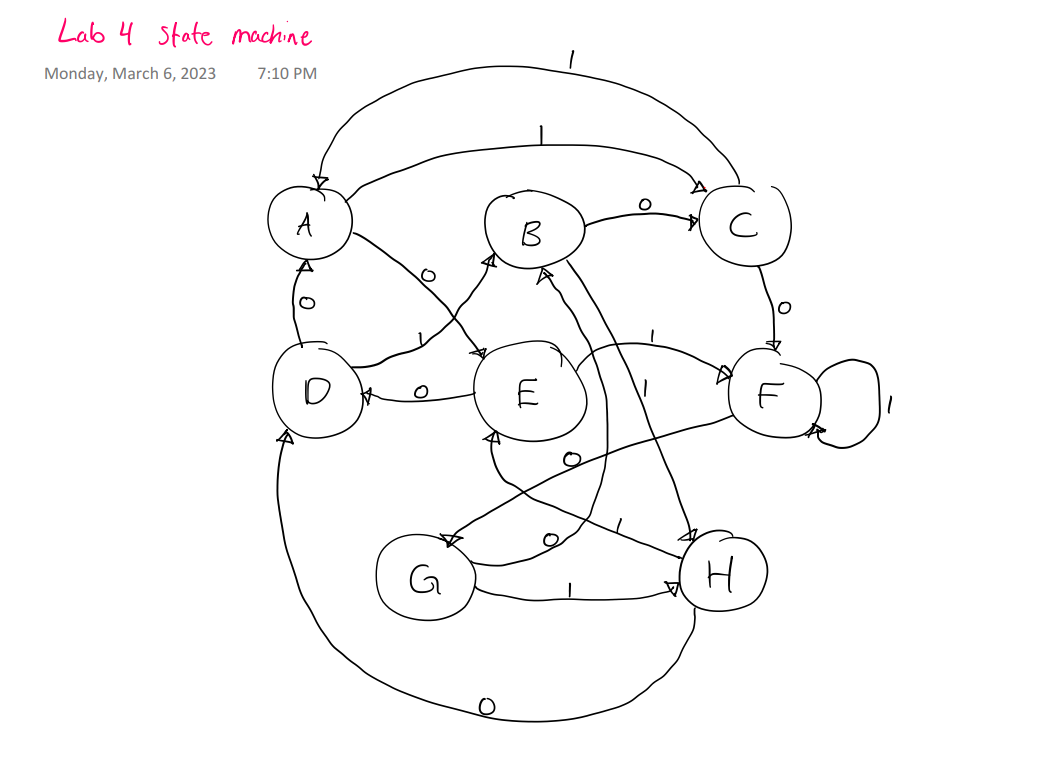 Lab 4 state machine
Monday, March 6, 2023 7:10 PM
1
1
A
B
0
C
0
0
0
1
1
D
0
E
1
F
1
0
1
0
G
1
H
0